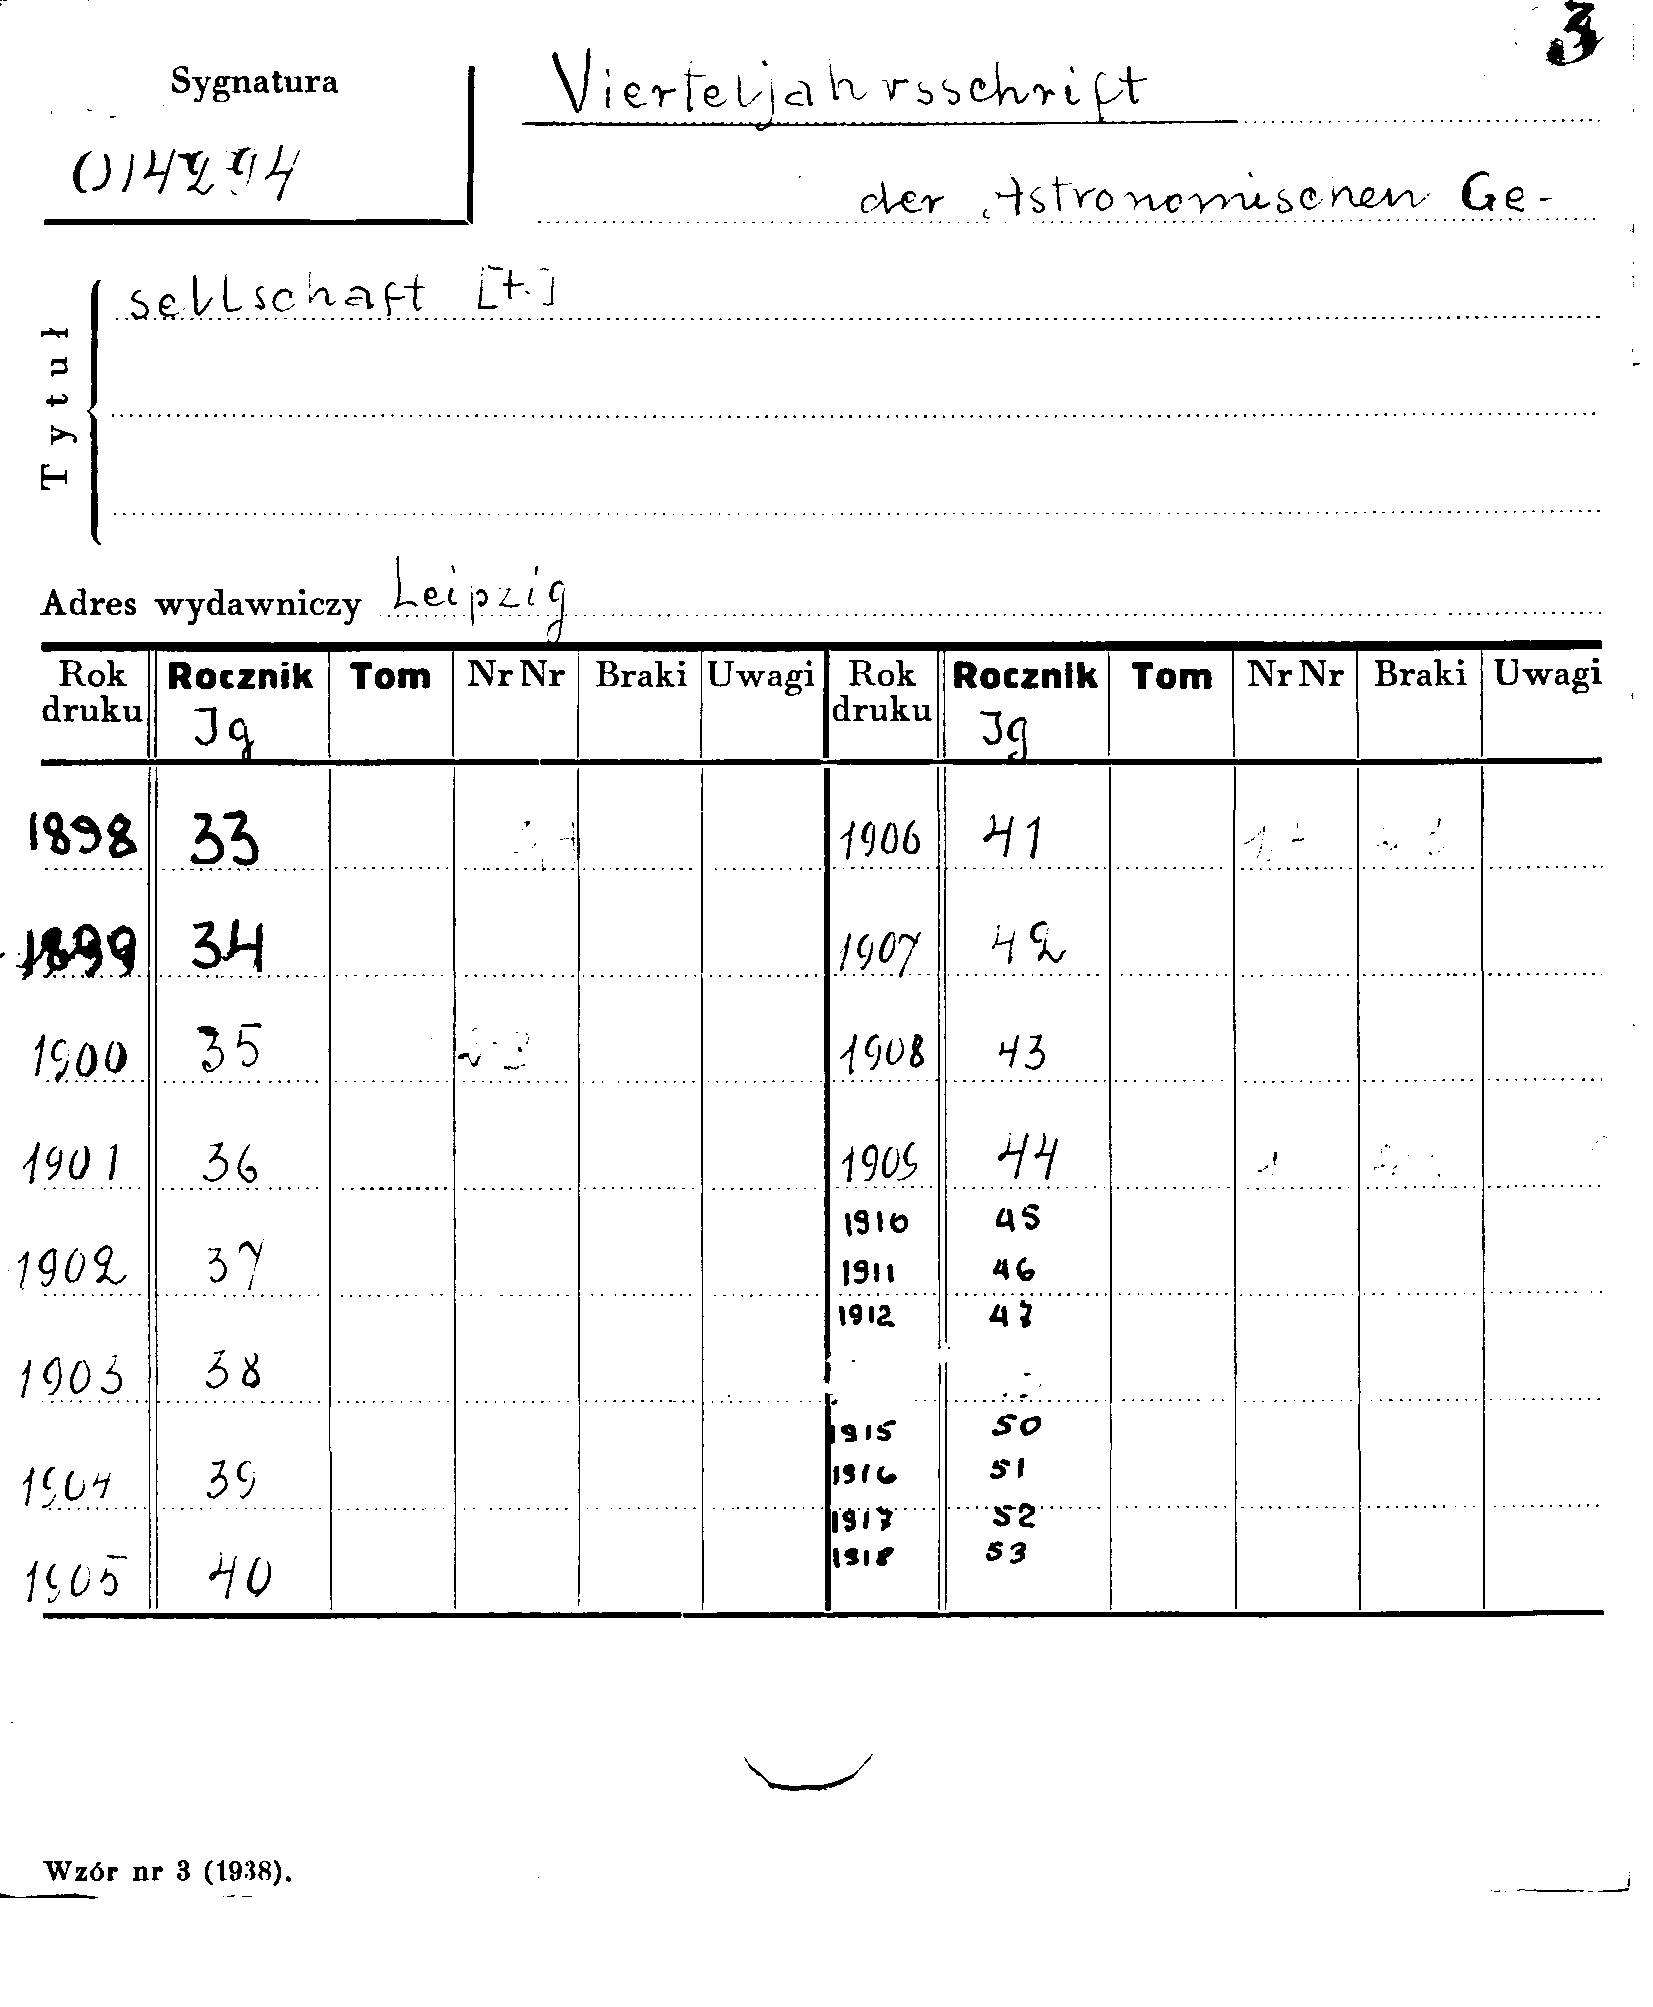 3
Sygnatura
014294
Vierteljahrsschrift
der Astronomischen Ge-
sellschaft [t.]
Tytuł
Adres wydawniczy Leipzig
Rok druku Rocznik Tom Nr Nr Braki Uwagi Rok druku Rocznik Tom Nr Nr Braki Uwagi
Jg Jg
1898 33 1906 41
1899 34 1907 42
1900 35 2-3 1908 43
1901 36 1909 44 1
1910 45
1902 37 1911 46
1912 47
1903 38
1915 50
1904 39 1916 51
1917 52
1905 40 1918 53
Wzór nr 3 (1938).